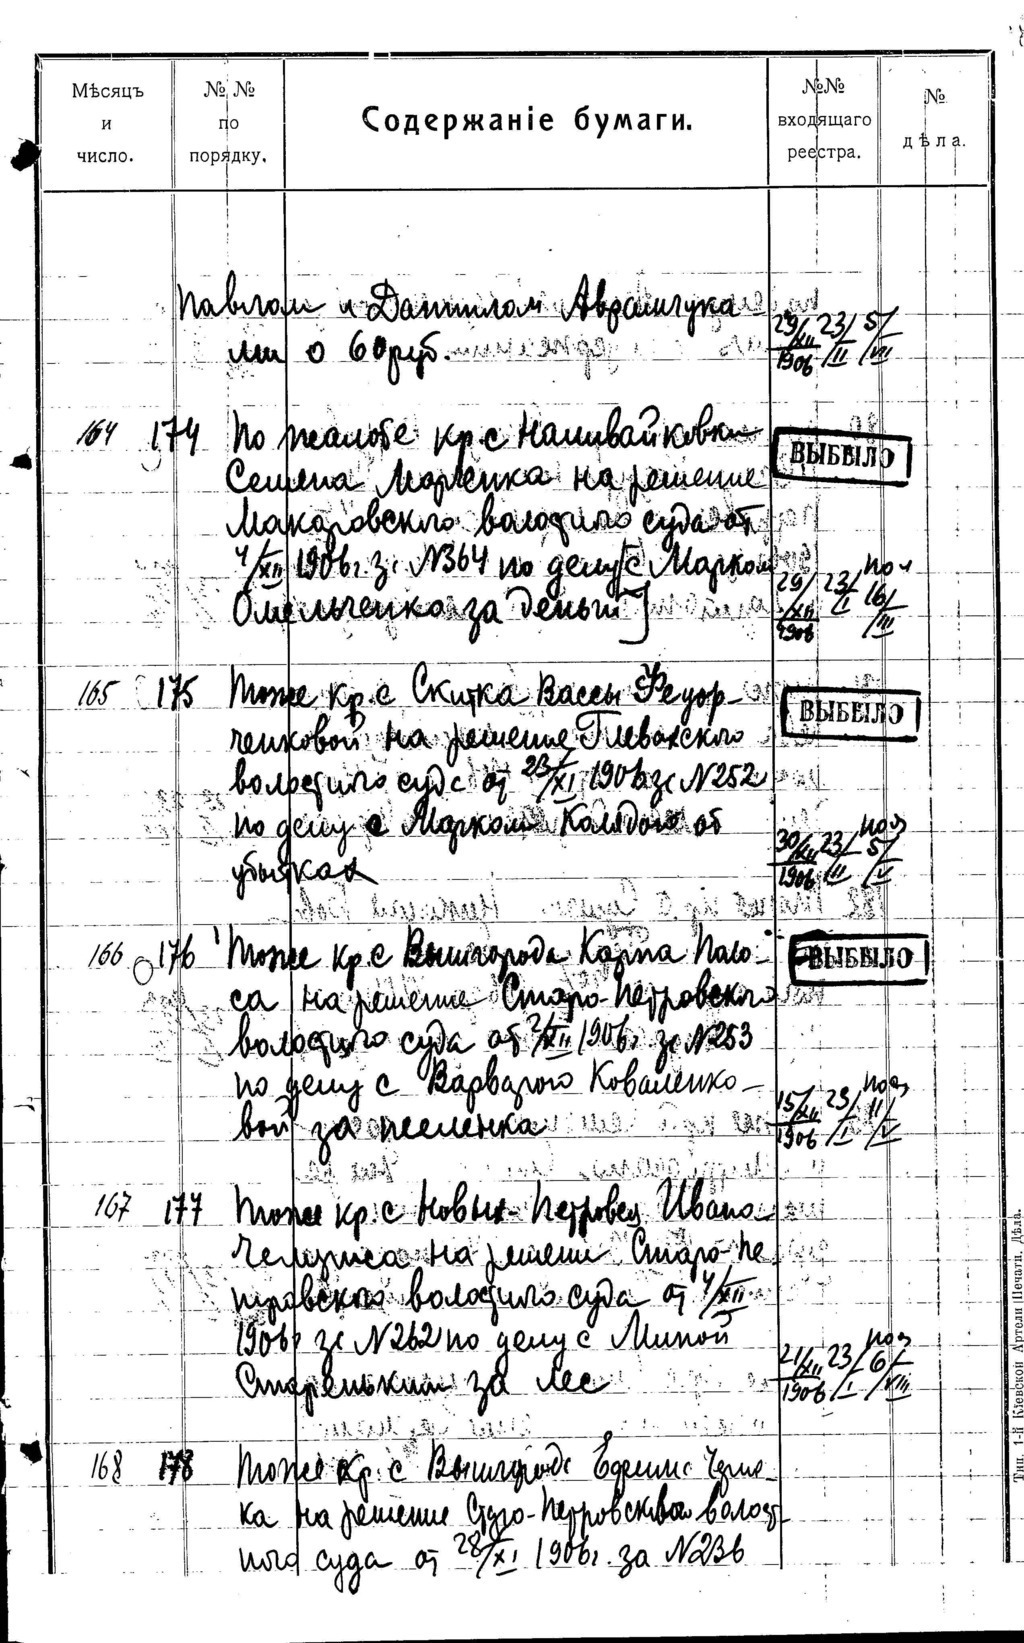 Мѣсяцъ и число.
№№ по порядку.
Содержаніе бумаги.
№№ входящаго реестра.
№ дѣла.
Павлом и Данилом Аврамчука
ми о 60 руб.
29/XII 1906 23/II 5/VII
164 174 По жалобе кр. с Наливайковки
ВЫБЫЛО
Семена Марченка на решение
Макаровского волостного суда от
4/XII 1906 г. за №364 по делу [с Марком
Омельченко за деньги]
29/XII 1906 23/I 16/III
165 175 Тоже кр. с Скитка Вассы Федор-
ВЫБЫЛО
ченковой на решение Глевахского
волостного суда от 23/XI 1906 за №252
по делу с Марком Колядою об
убытках
30/XII 1906 23/II 5/V
166 176 Тоже кр. с Вышгорода Карпа
ВЫБЫЛО
са на решение Старо-Петровского
волостного суда от 2/XII 1906 г. за №253
по делу с Варварою Коваленко-
вой за
15/XII 1906 23/I 11/V
167 177 Тоже кр. с Новых-Петровец Ивана
на решение Старо-Пе
тровского волостного суда от 4/XII
1906 г за №262 по делу с Миной
Стареньким за лес
21/XII 1906 23/I 6/VIII
168 178 Тоже кр. с Вышгорода Ефима
ка на решение Старо-Петровской волост
ного суда от 28/XI 1906 г. за №236
Тип. 1-й Кіевской Артели Печатн. Дѣла.